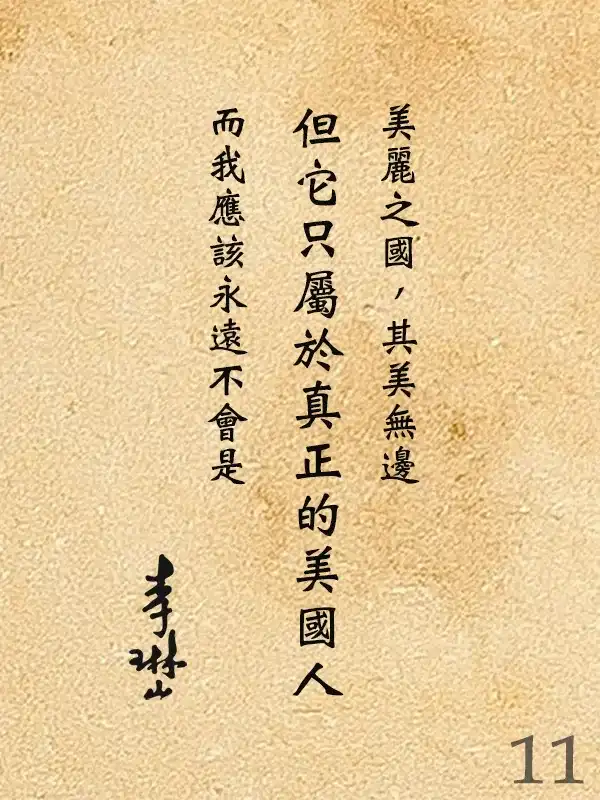 美麗之國，其美無邊
但它只屬於真正的美國人
而我應該永遠不會是
李琳山
11